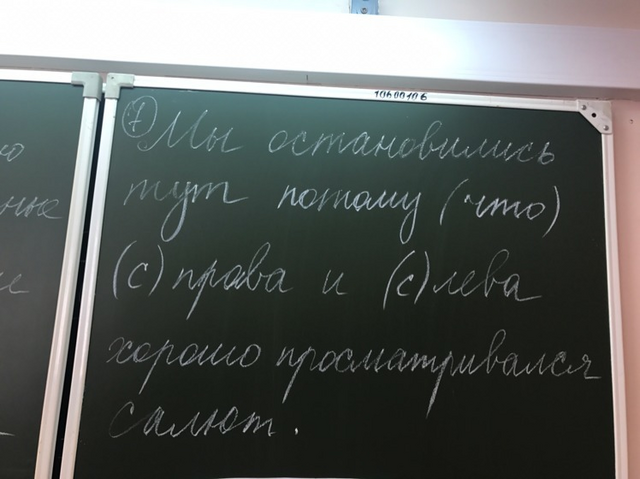 10600106
ю
нные
е
7 Мы остановились
тут потому (что)
(с)права и (с)лева
хорошо просматривался
салют.